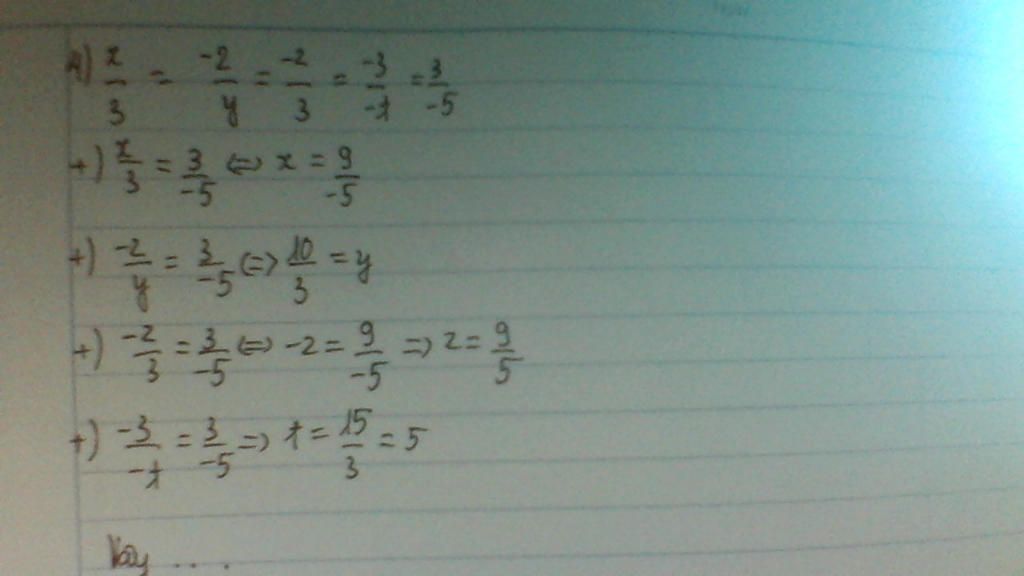 A) x/3 = -2/y = -z/3 = -3/-t = 3/-5
+) x/3 = 3/-5 <=> x = 9/-5
+) -2/y = 3/-5 <=> 10/3 = y
+) -z/3 = 3/-5 <=> -z = 9/-5 => z = 9/5
+) -3/-t = 3/-5 => t = 15/3 = 5
Vậy ....